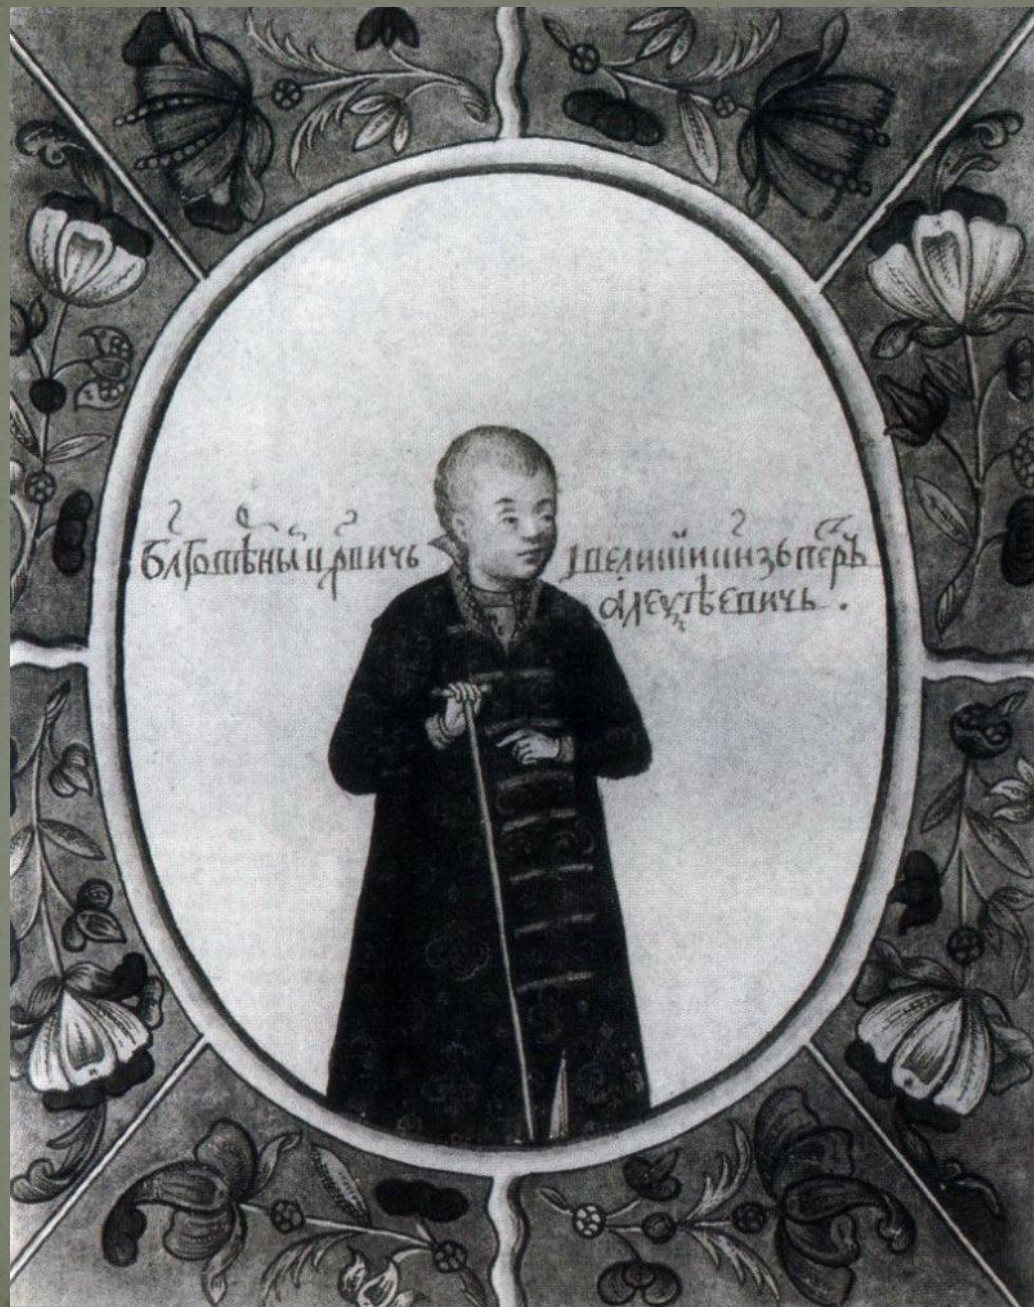 Бл҃говѣрный цр҃вичь і великий кн҃зь петръ
алеѯѣевичь.